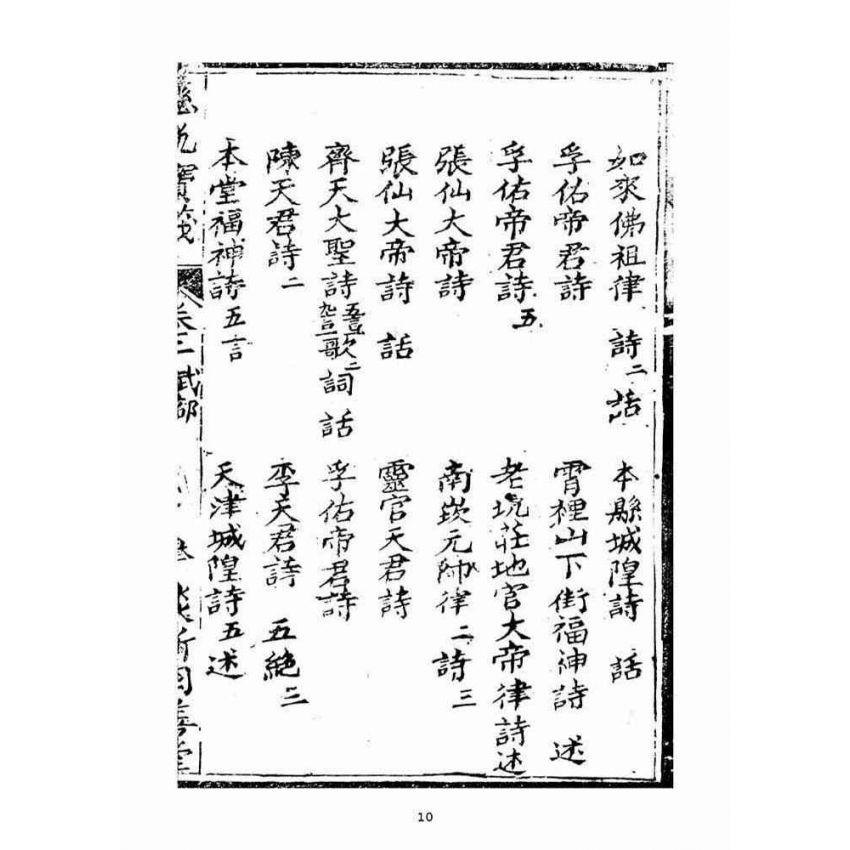 如來佛祖律 詩二 話
本縣城隍詩 話
孚佑帝君詩
霄裡山下街福神詩 述
孚佑帝君詩 五
老坑莊地官大帝律詩述
張仙大帝詩
南崁元帥律二 詩三
張仙大帝詩 話
靈官天君詩
齊天大聖詩 五言 九言 歌二 詞 話
孚佑帝君詩
陳天君詩二
李天君詩 五絕三
本堂福神詩五言
天津城隍詩五述
寶筏
卷三 武部
新同善堂
10